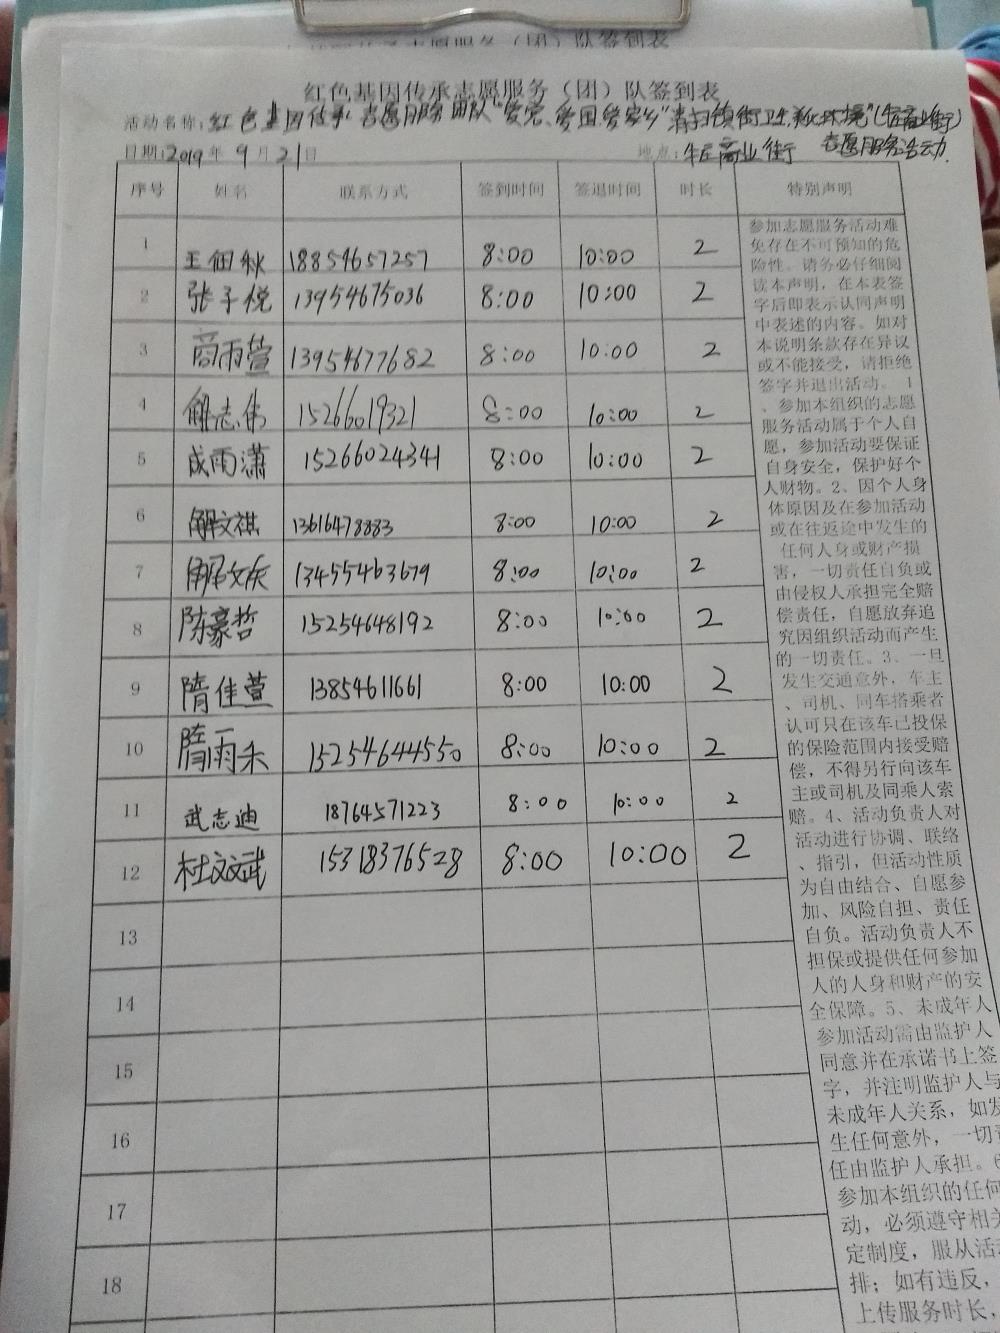 红色基因传承志愿服务（团）队签到表
活动名称：红色基因传承志愿服务团队“爱党、爱国、爱家乡”清扫镇街卫生，净化环境”（牛庄商业街）
志愿服务活动
日期：2019年9月21日 地点：牛庄商业街
序号 姓名 联系方式 签到时间 签退时间 时长 特别声明
1 王佃秋 18854657257 8:00 10:00 2
2 张子悦 13954675036 8:00 10:00 2
3 商雨萱 13954677682 8:00 10:00 2
4 解志伟 15266019321 8:00 10:00 2
5 成雨潇 15266024341 8:00 10:00 2
6 解文祺 13616478883 8:00 10:00 2
7 解文庆 13455463679 8:00 10:00 2
8 陈豪哲 15254648192 8:00 10:00 2
9 隋佳萱 13854611661 8:00 10:00 2
10 隋雨禾 15254644550 8:00 10:00 2
11 武志迪 18764571223 8:00 10:00 2
12 杜文斌 15318376528 8:00 10:00 2
13
14
15
16
17
18
参加志愿服务活动难
免存在不可预知的危
险性。请务必仔细阅
读本声明，在本表签
字后即表示认同声明
中表述的内容。如对
本说明条款存在异议
或不能接受，请拒绝
签字并退出活动。1
、参加本组织的志愿
服务活动属于个人自
愿，参加活动要保证
自身安全，保护好个
人财物。2、因个人身
体原因及在参加活动
或在往返途中发生的
任何人身或财产损
害，一切责任自负或
由侵权人承担完全赔
偿责任，自愿放弃追
究因组织活动而产生
的一切责任。3、一旦
发生交通意外，车主
、司机、同车搭乘者
认可只在该车已投保
的保险范围内接受赔
偿，不得另行向该车
主或司机及同乘人索
赔。4、活动负责人对
活动进行协调、联络
、指引，但活动性质
为自由结合、自愿参
加、风险自担、责任
自负。活动负责人不
担保或提供任何参加
人的人身和财产的安
全保障。5、未成年人
参加活动需由监护人
同意并在承诺书上签
字，并注明监护人与
未成年人关系，如发
生任何意外，一切
任由监护人承担。
参加本组织的任何
动，必须遵守相关
定制度，服从活
排；如有违反，
上传服务时长，